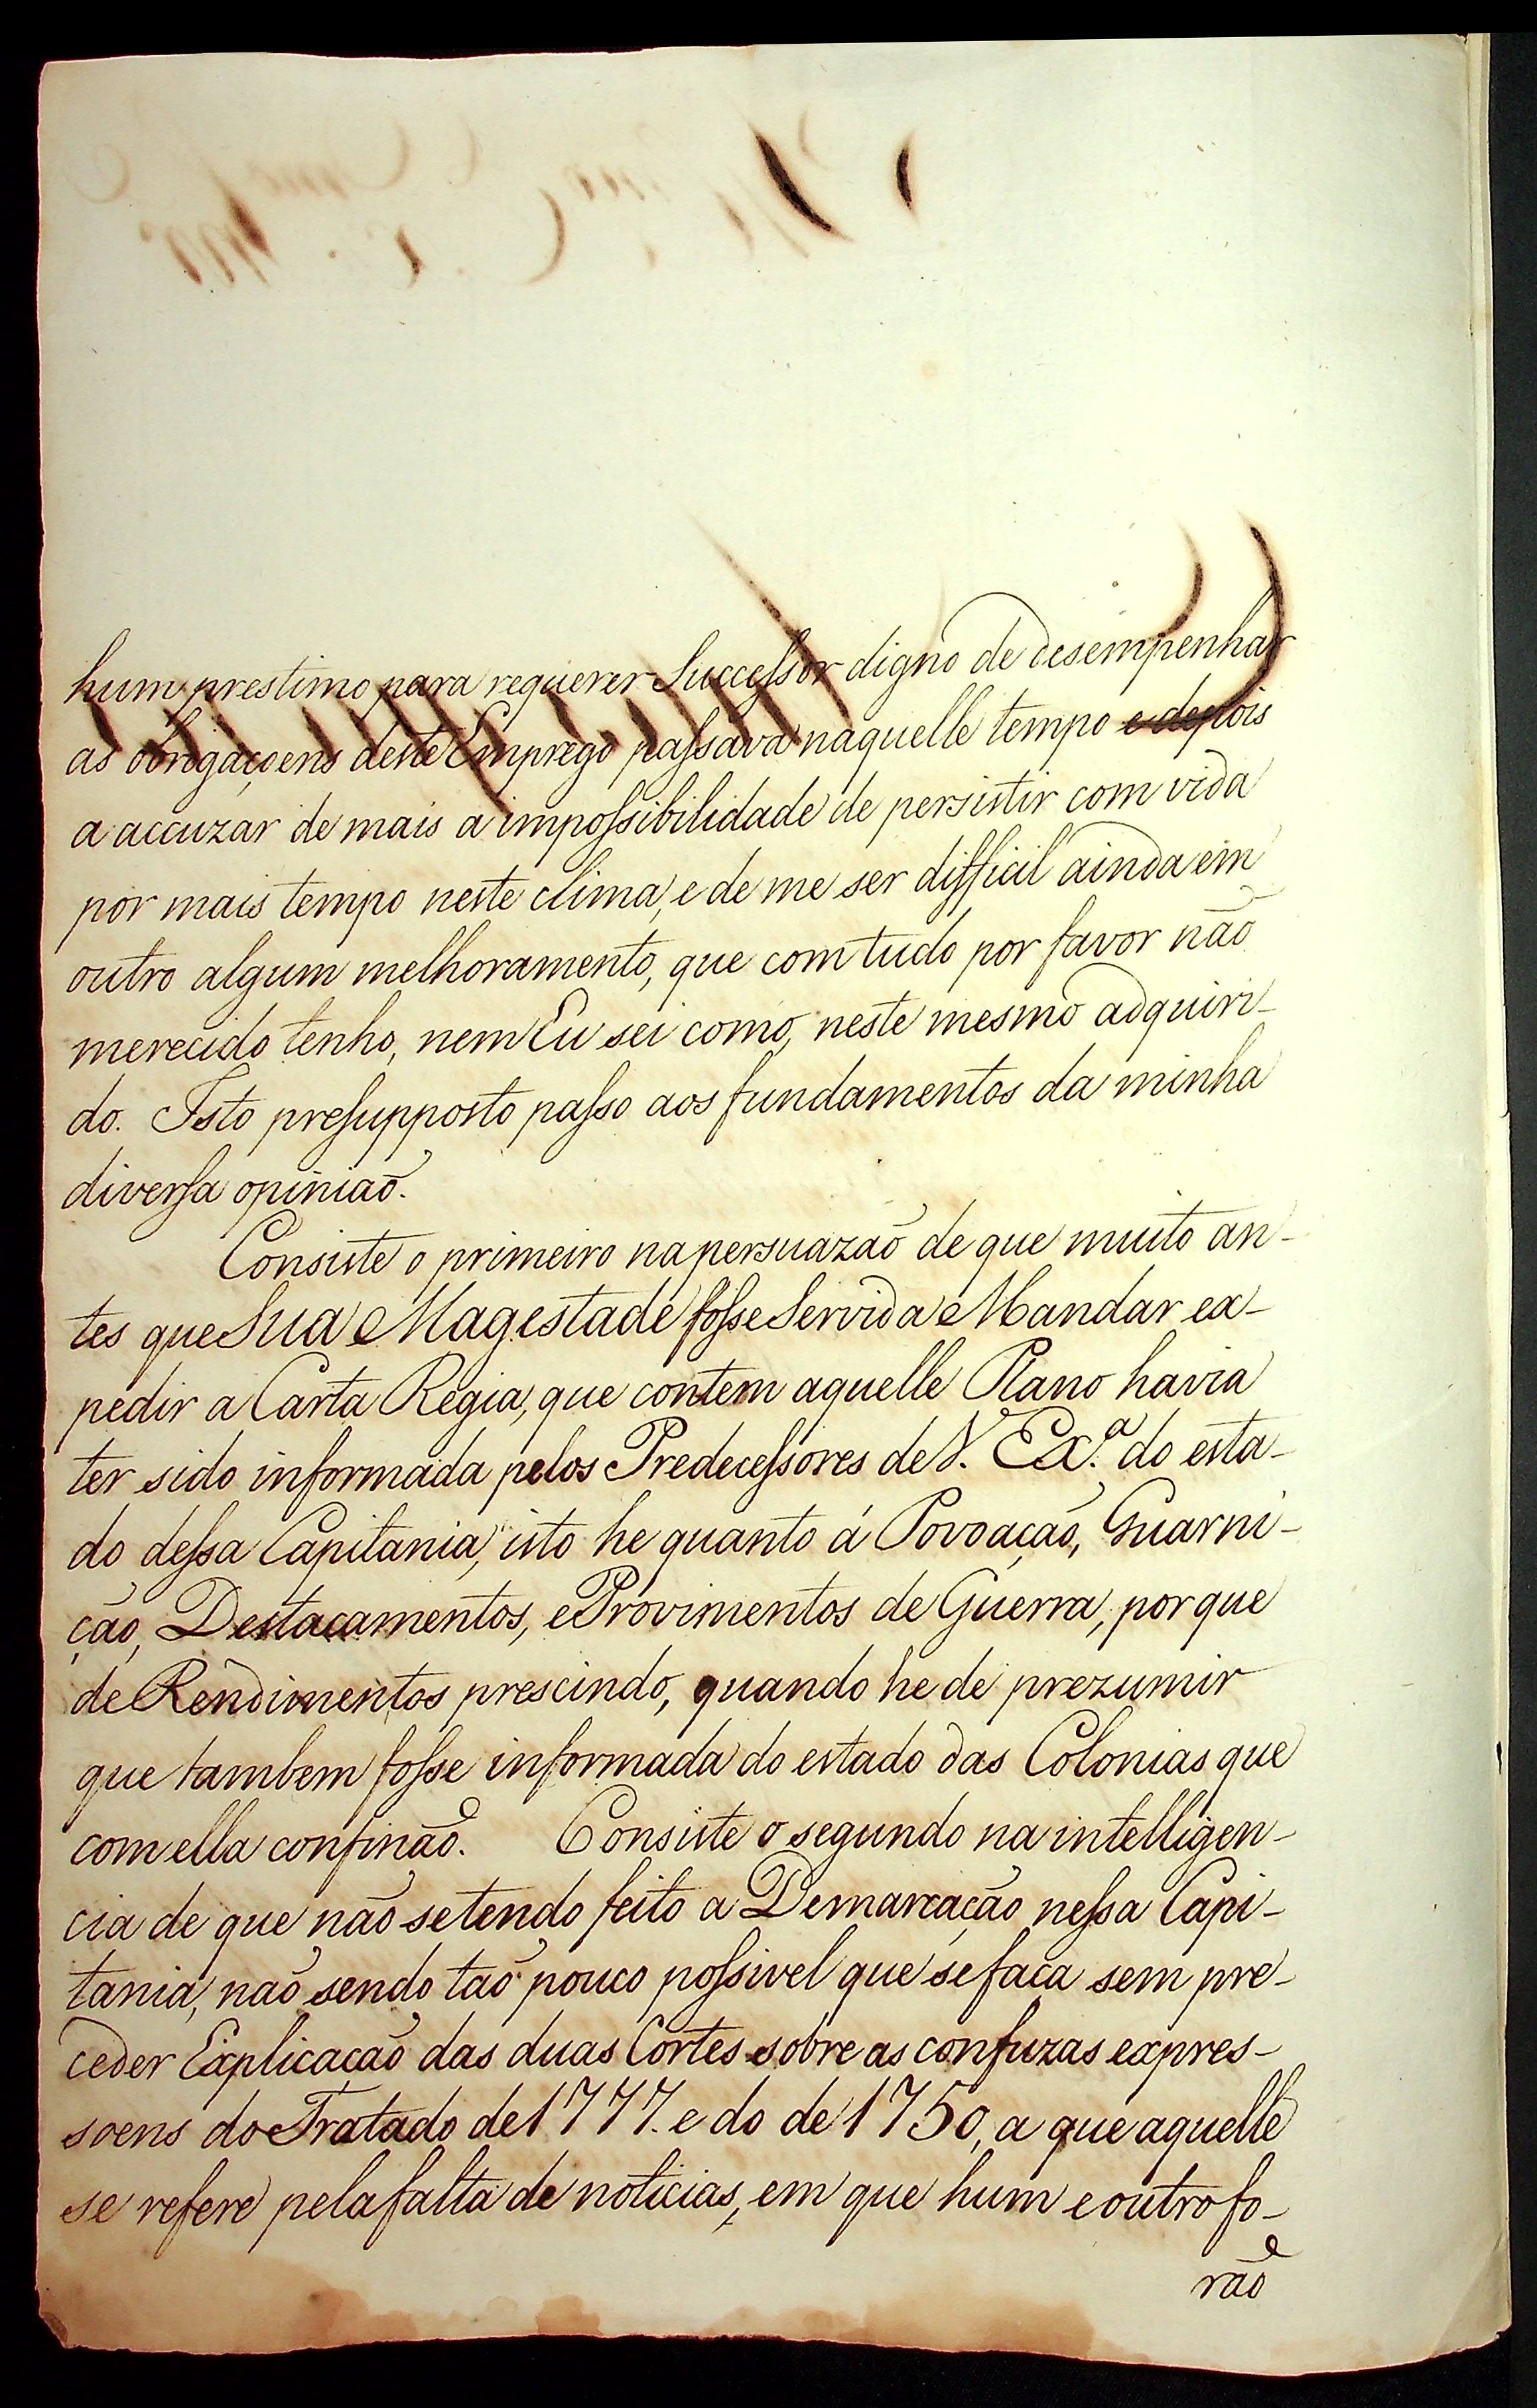 hum prestimo para requerer Successor digno de desempenhar
as obrigaçoens deste Emprego passava naquelle tempo e depois
a accuzar de mais a impossibilidade de persistir com vida
por mais tempo neste clima, e de me ser difficil ainda em
outro algum melhoramento, que com tudo por favor não
merecido tenho, nem Eu sei como, neste mesmo adquiri-
do. Isto presupposto passo aos fundamentos da minha
diversa opinião.
Consiste o primeiro na persuazão de que muito an-
tes que Sua Magestade fosse Servida Mandar ex-
pedir a Carta Regia, que contem aquelle Plano havia
ter sido informada pelos Predecessores de V. Ex.ª do esta-
do dessa Capitania, isto he quanto á Povoação, Guarni-
ção, Destacamentos, e Provimentos de Guerra, porque
de Rendimentos prescindo, quando he de prezumir
que tambem fosse informada do estado das Colonias que
com ella confinão. Consiste o segundo na intelligen-
cia de que não se tendo feito a Demarcação nessa Capi-
tania, não sendo tão pouco possivel que se faça sem pre-
ceder Explicação das duas Cortes sobre as confuzas expres-
soens do Tratado de 1777. e do de 1750, a que aquelle
se refere pela falta de noticias, em que hum e outro fo-
rão